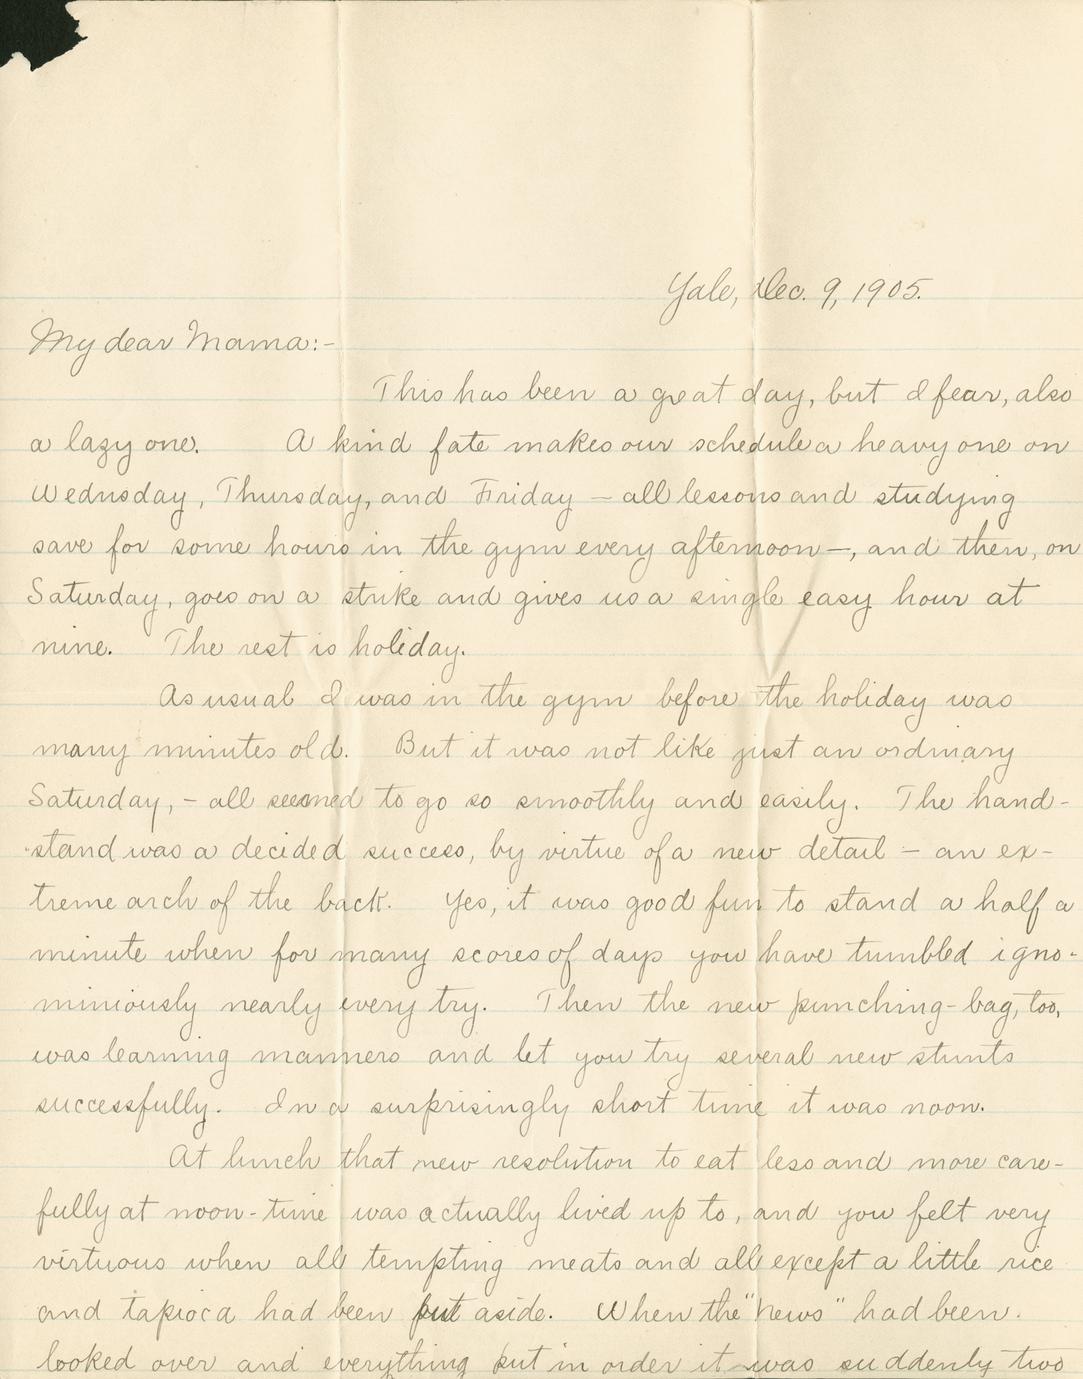 Yale, Dec. 9, 1905.
My dear Mama:-
This has been a great day, but I fear, also
a lazy one. A kind fate makes our schedule a heavy one on
Wednesday, Thursday, and Friday — all lessons and studying
save for some hours in the gym every afternoon —, and then, on
Saturday, goes on a strike and gives us a single easy hour at
nine. The rest is holiday.
As usual I was in the gym before the holiday was
many minutes old. But it was not like just an ordinary
Saturday, - all seemed to go so smoothly and easily. The hand-
stand was a decided success, by virtue of a new detail — an ex-
treme arch of the back. Yes, it was good fun to stand a half a
minute when for many scores of days you have tumbled igno-
miniously nearly every try. Then the new punching-bag, too,
was learning manners and let you try several new stunts
successfully. In a surprisingly short time it was noon.
At lunch that new resolution to eat less and more care-
fully at noon-time was actually lived up to, and you felt very
virtuous when all tempting meats and all except a little rice
and tapioca had been put aside. When the "News" had been
looked over and everything put in order it was suddenly two